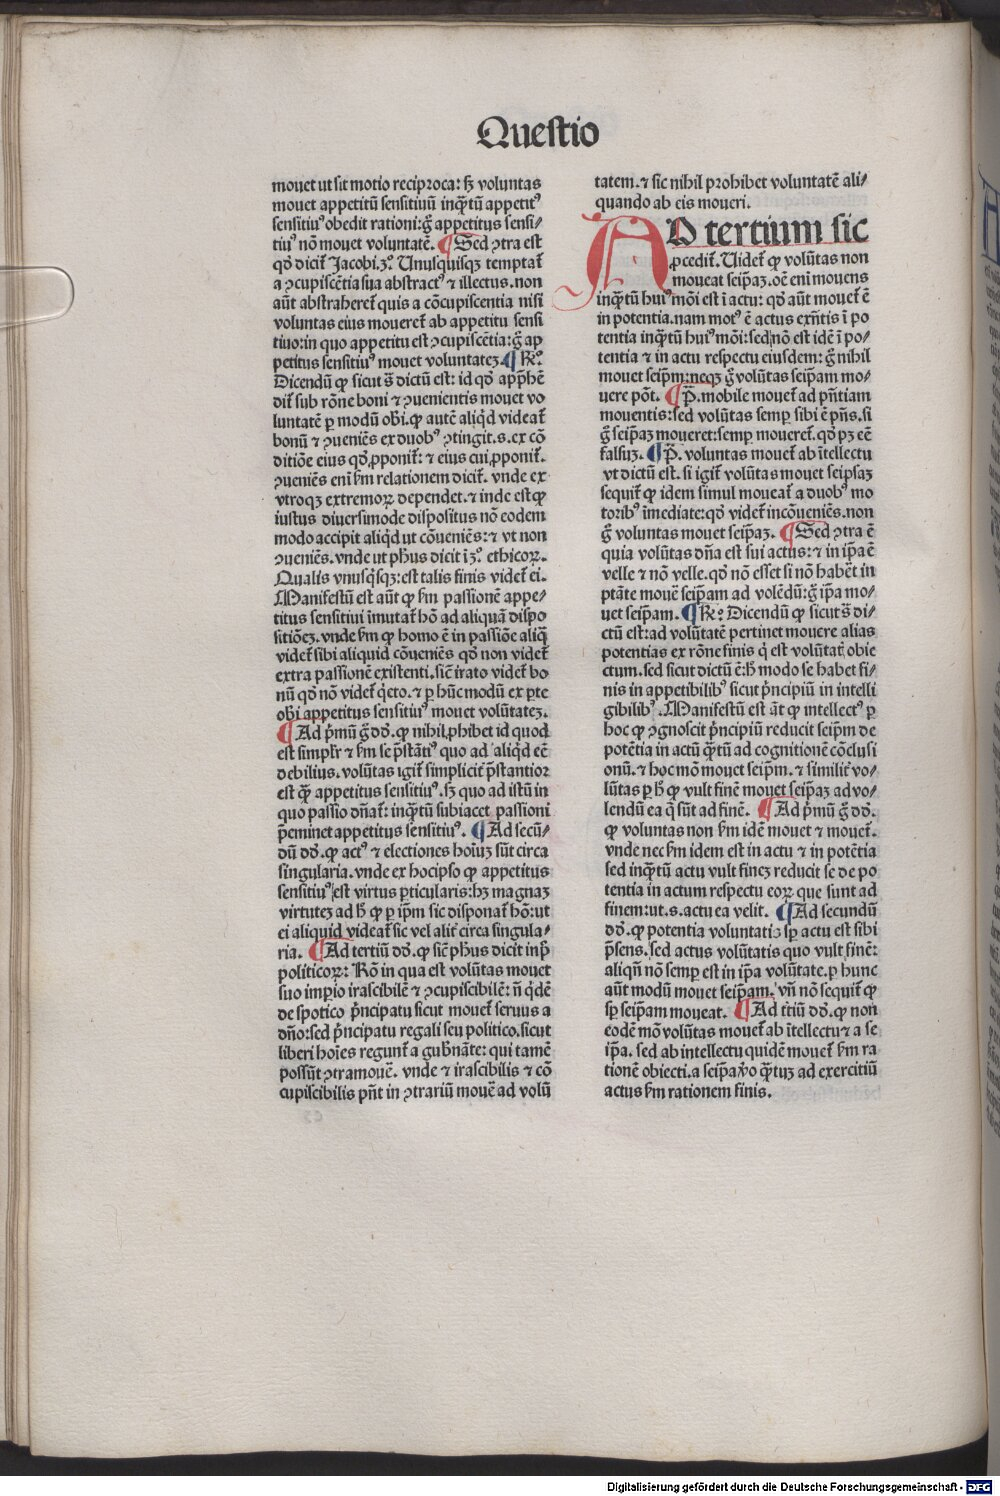 Questio
mouet ut sit motio reciproca: sꝫ voluntas
mouet appetitũ sensitiuũ inqͣtũ appetitꝰ
sensitiuꝰ obedit rationi: g̃ appetitus sensi⸗
tiuꝰ nõ mouet voluntatẽ. ¶ Sed ꝯtra est
qđ dicit̃ Jacobi.ꝫº. Unusquisqꝫ temptat̃
a ꝯcupiscẽtia sua abstractꝰ ⁊ illectus. non
aũt abstraheret̃ quis a cõcupiscentia nisi
voluntas eius moueret̃ ab appetitu sensi
tiuo: in quo appetitu est ꝯcupiscẽtia: g̃ ap
petitus sensitiuꝰ mouet voluntateꝫ. ¶ Rͤ.º
Dicendũ ꝙ sicut s̃ dictũ est: id qđ app̃hẽ
dit̃ sub rõne boni ⁊ ꝯuenientis mouet vo
luntatẽ ꝑ modũ obi. ꝙ autẽ aliq̇d videat̃
bonũ ⁊ ꝯueniẽs ex duobꝰ ꝯtingit. s. ex cõ
ditiõe eius qđ ꝓponit̃: ⁊ eius cui ꝓponit̃.
ꝯueniẽs eni ẜm relationem dicit̃. vnde ex
vtroqꝫ extremoꝝ dependet. ⁊ inde est ꝙ
iustus diuersimode dispositus nõ eodem
modo accipit aliq̇d ut cõueniẽs: ⁊ vt non
ꝯueniẽs. vnde ut pħus dicit i ꝫº. ethicoꝝ.
Qualis vnusq̇sqꝫ: est talis finis videt̃ ei.
Manifestũ est aũt ꝙ ẜm passionẽ appe⸗
titus sensitiui ĩmutat̃ hõ ad aliquã dispo
sitiõeꝫ. vnde ẜm ꝙ homo ẽ in passiõe aliq̃
videt̃ sibi aliquid cõueniẽs qđ non videt̃
extra passionẽ existenti. sic̃ irato videt̃ bo
nũ qđ nõ videt̃ q̇eto. ⁊ ꝑ hũc modũ ex ꝑte
obi appetitus sensitiuꝰ mouet volũtateꝫ.
¶ Ad p̃mũ g̃ dđ. ꝙ nihil ꝓhibet id quod
est simplr̃ ⁊ ẜm se p̃stãtiꝰ quo ad aliq̇d eẽ
debilius. volũtas igit̃ simplicit̃ p̃stantior
est qͣ̃ appetitus sensitiuꝰ. sꝫ quo ad istũ in
quo passio dñat̃: inqͣtũ subiacet passioni
p̃eminet appetitus sensitiuꝰ. ¶ Ad secũ⸗
dũ dđ. ꝙ actꝰ ⁊ electiones hoĩuꝫ sũt circa
singularia. vnde ex hocipso ꝙ appetitus
sensitiuꝰ est virtus ꝑticularis: hꝫ magnaꝫ
virtuteꝫ ad ħ ꝙ ꝑ ip̃m sic disponat̃ hõ: ut
ei aliquid videat̃ sic vel alit̃ circa singula⸗
ria. ¶ Ad tertiũ dđ. ꝙ sic̃ pħus dicit in p̃
politicoꝝ: Rõ in qua est volũtas mouet
suo imp̃io irascibilẽ ⁊ ꝯcupiscibilẽ: ñ q̇dẽ
despotico p̃ncipatu sicut mouet̃ seruus a
dño: sed p̃ncipatu regali seu politico. sicut
liberi hoĩes regunt̃ a gub̃nãte: qui tamẽ
possũt ꝯtramouẽ. vnde ⁊ irascibilis ⁊ cõ
cupiscibilis pñt in ꝯtrariũ mouẽ ad volũ
tatem. ⁊ sic nihil prohibet voluntatẽ ali⸗
quando ab eis moueri.
AD tertium sic
ꝓcedit̃. Uidet̃ ꝙ volũtas non
moueat seip̃aꝫ. oẽ eni mouens
inqͣtũ huiꝰmõi est ĩ actu: qđ aũt mouet̃ ẽ
in potentia. nam motꝰ ẽ actus exñtis ĩ po
tentia inqͣtũ huiꝰ mõi: sed nõ est idẽ ĩ po⸗
tentia ⁊ in actu respectu eiusdem: g̃ nihil
mouet seip̃m: neqꝫ g̃ volũtas seip̃am mo⸗
uere põt. ¶ P̃. mobile mouet̃ ad pñtiam
mouentis: sed volũtas semꝑ sibi ẽ pñs. si
g̃ seip̃aꝫ moueret: semꝑ moueret̃. qđ pꝫ eẽ
falsuꝫ. ¶ P̃. voluntas mouet̃ ab ĩtellectu
vt dictũ est. si igit̃ volũtas mouet seipsaꝫ
sequit̃ ꝙ idem simul moueat̃ a duobꝰ mo
toribꝰ ĩmediate: qđ videt̃ incõueniẽs. non
g̃ voluntas mouet seip̃aꝫ. ¶ Sed ꝯtra ẽ
quia volũtas dña est sui actus: ⁊ in ip̃a ẽ
velle ⁊ nõ velle. qđ nõ esset si nõ habẽt in
ptãte mouẽ seip̃am ad volẽdũ: g̃ ip̃a mo⸗
uet seip̃am. ¶ Rͤ.º Dicendũ ꝙ sicut s̃ di⸗
ctũ est: ad volũtatẽ pertinet mouere alias
potentias ex rõne finis q̇ est volũtat̃ obie
ctum. sed sicut dictũ ẽ: ħ modo se habet fi⸗
nis in appetibilibꝰ sicut p̃ncipiũ in intelli
gibilibꝰ. Manifestũ est ãt ꝙ intellectꝰ ꝑ
hoc ꝙ ꝯgnoscit p̃ncipiũ reducit seip̃m de
potẽtia in actũ qͣtũ ad cognitionẽ cõclusi
onũ. ⁊ hoc mõ mouet seip̃m. ⁊ similit̃ vo⸗
lũtas ꝑ ħ ꝙ vult finẽ mouet seip̃aꝫ ad vo⸗
lendũ ea q̃ sũt ad finẽ. ¶ Ad p̃mũ g̃ dđ.
ꝙ voluntas non ẜm idẽ mouet ⁊ mouet̃.
vnde nec ẜm idem est in actu ⁊ in potẽtia
sed inqͣtũ actu vult fineꝫ reducit se de po
tentia in actum respectu eoꝝ que sunt ad
finem: ut. s. actu ea velit. ¶ Ad secundũ
dđ. ꝙ potentia voluntatis sꝑ actu est sibi
p̃sens. sed actus volũtatis quo vult finẽ:
aliqñ nõ semꝑ est in ip̃a volũtate. ꝑ hunc
aũt modũ mouet seip̃am. vñ nõ sequit̃ ꝙ
sꝑ seip̃am moueat. ¶ Ad t̃tiũ dđ. ꝙ non
eodẽ mõ volũtas mouet̃ ab ĩtellectu ⁊ a se
ip̃a. sed ab intellectu quidẽ mouet̃ ẜm ra
tionẽ obiecti. a seip̃a v̊o qͣtuꝫ ad exercitiũ
actus ẜm rationem finis.
Digitalisierung gefördert durch die Deutsche Forschungsgemeinschaft - DFG